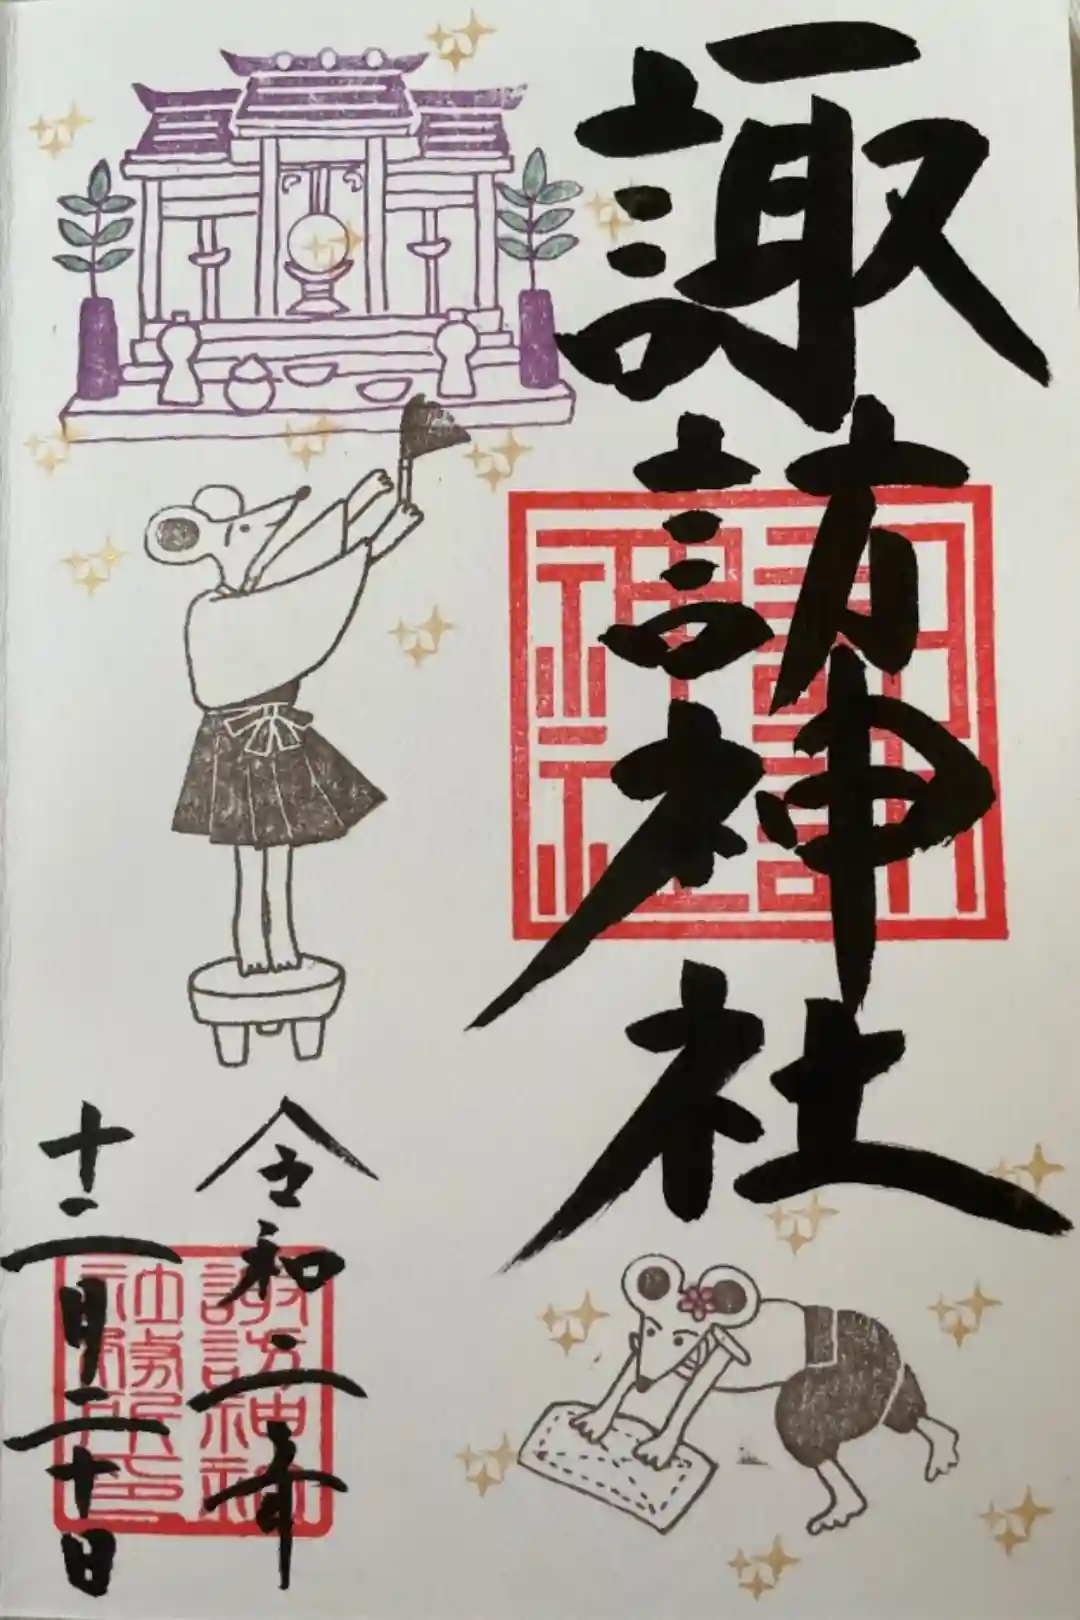 諏訪神社
諏訪
神社
令和二年
十二月二十日
諏訪神社
社務所之印